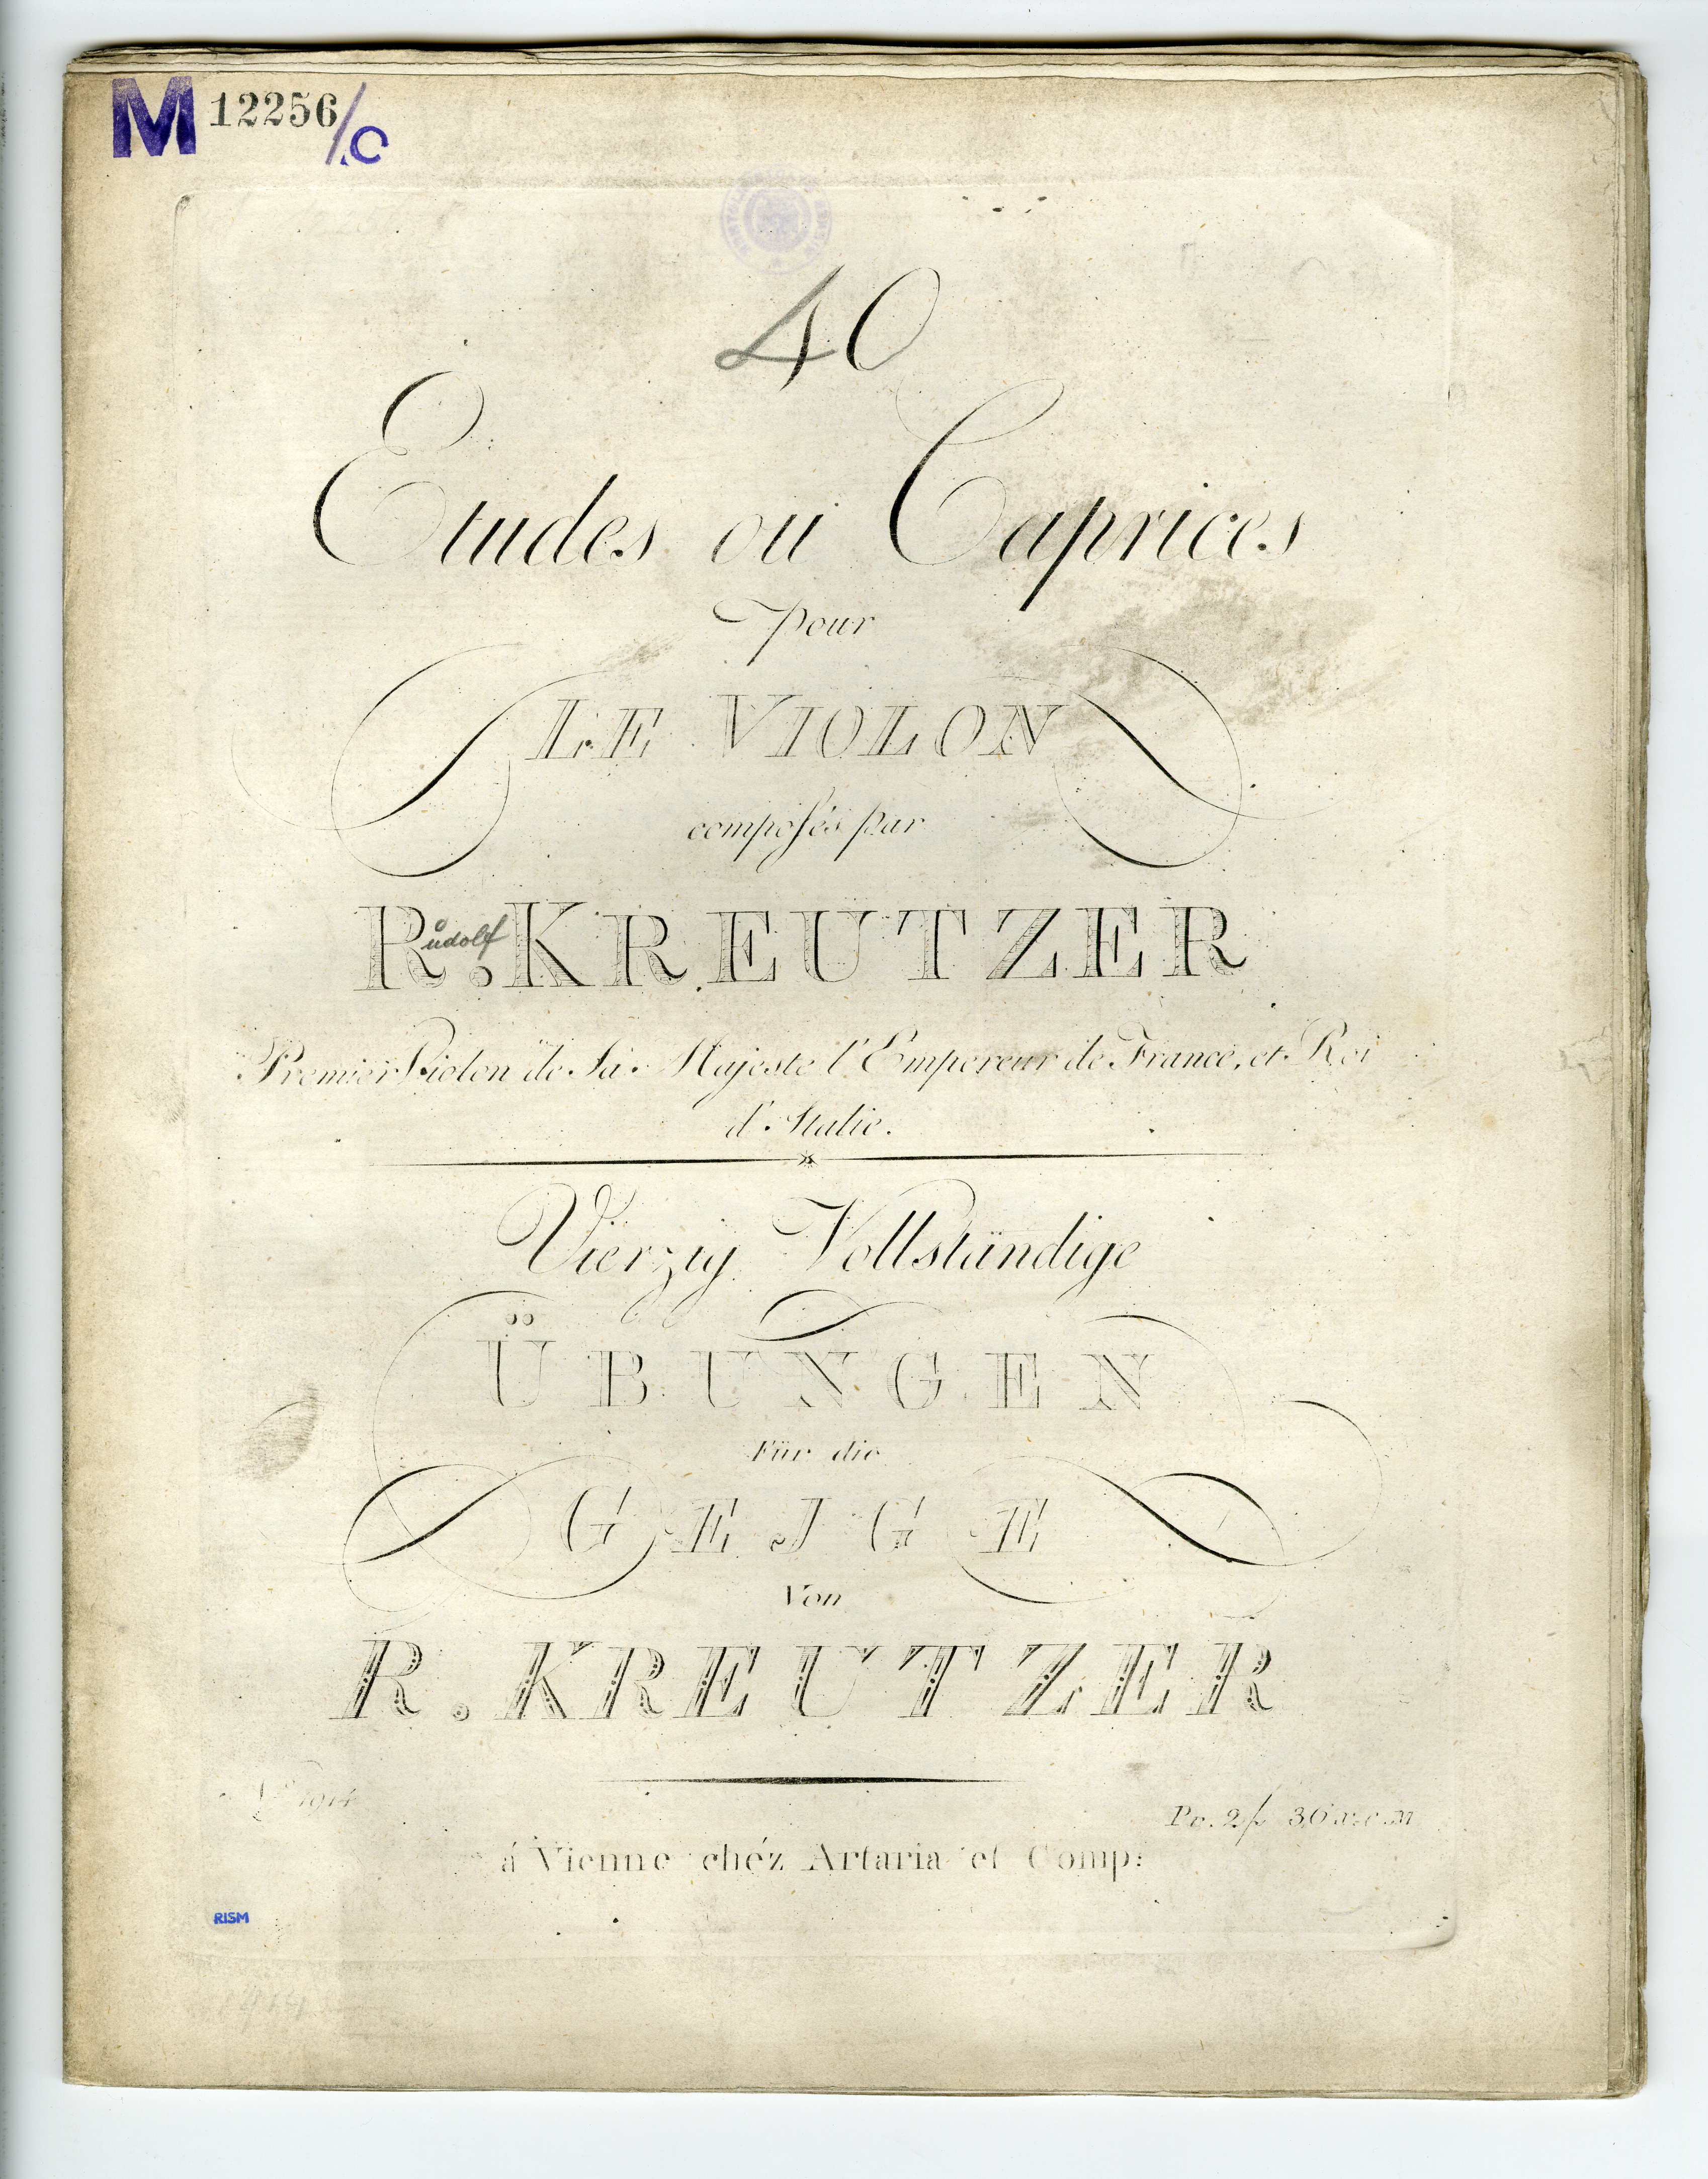 M 12256/C
40
Etudes ou Caprices
pour
LE VIOLON
composés par
R.udolf KREUTZER
Premier Violon de Sa Majeste l'Empereur de France, et Roi
d'Italie.
Vierzig Vollständige
ÜBUNGEN
Für die
GEJGE
Von
R. KREUTZER
á Vienne chéz Artaria et Comp:
RISM